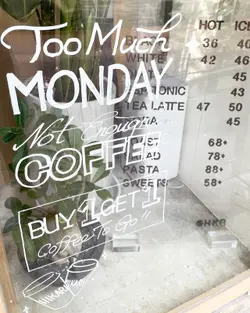 Too Much
MONDAY
Not Enough
COFFEE
BUY 1 GET 1
Coffee To Go!!
HOT
36 40
WHITE 42 46
45
TONIC 45
TEA LATTE 47 50
45
68+
78+
PASTA 88+
SWEETS 58+
@HKB